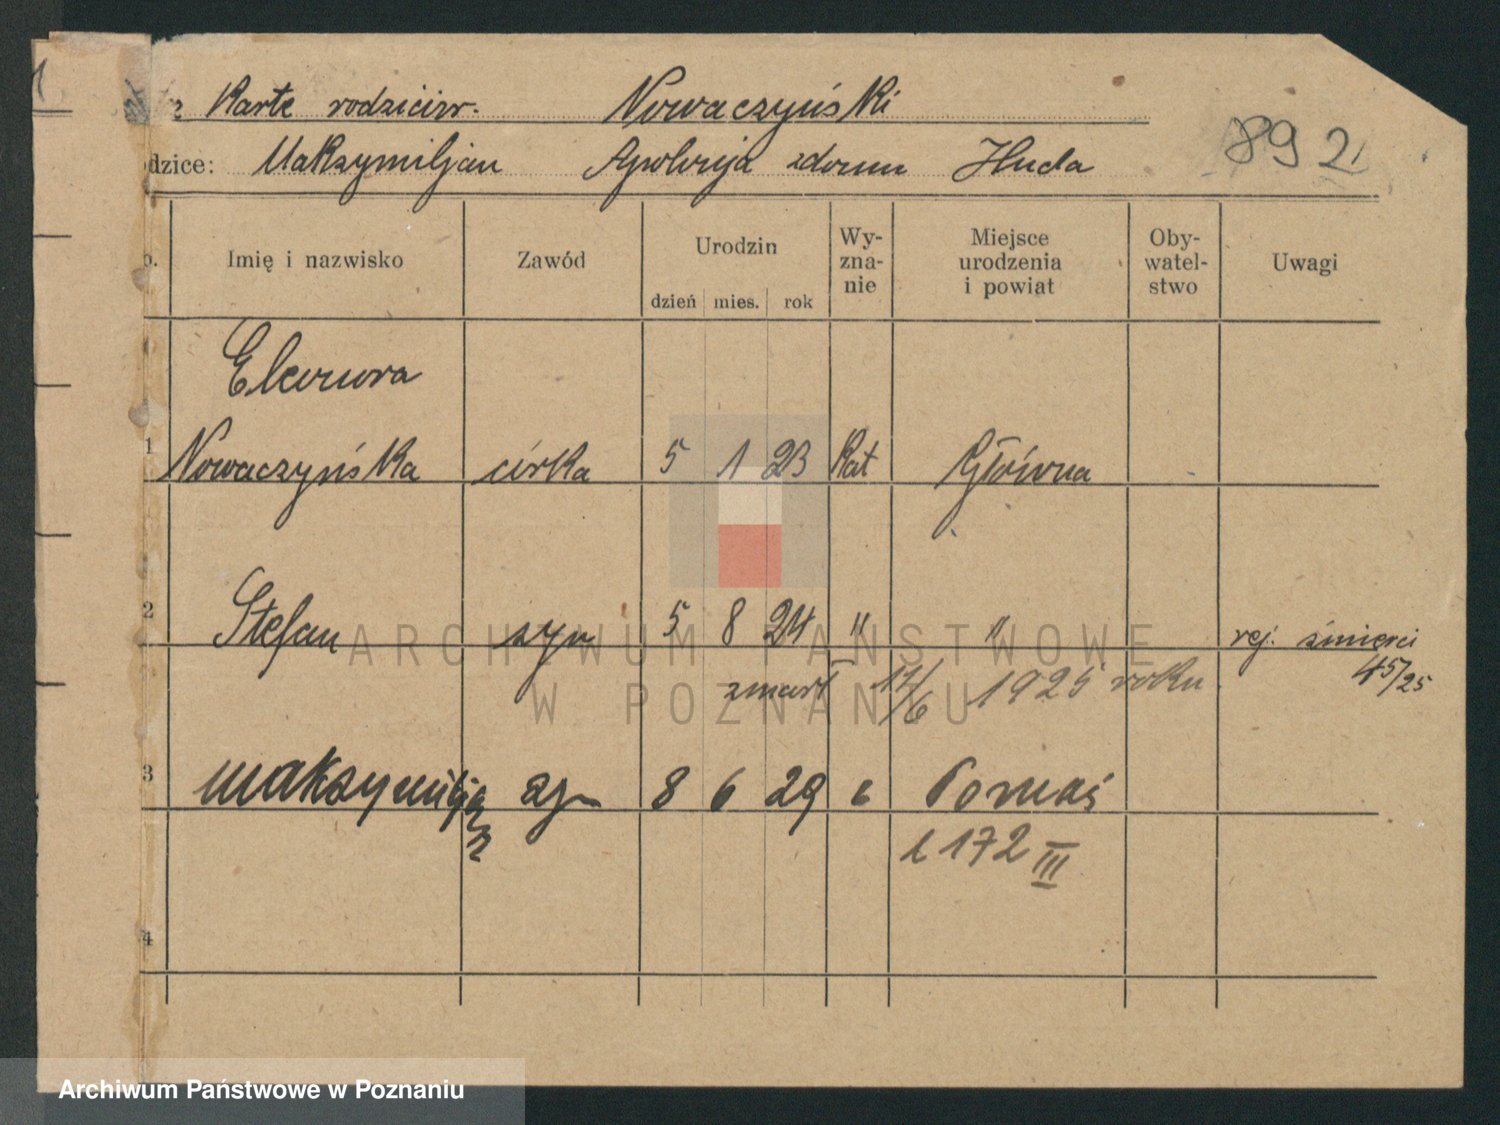 Karte rodziców. Nowaczyński
892
odzice: Maksymiljan Apolonja zdomu Huda
Imię i nazwisko Zawód Urodzin Wy- zna- nie Miejsce urodzenia i powiat Oby- watel- stwo Uwagi
dzień mies. rok
Eleonora
1 Nowaczyńska córka 5 1 23 Kat Główna
2 Stefan syn 5 8 24 " " rej. śmierci
45/25
zmarł 17/6 1925 roku
3 Maksymiljan syn 8 6 29 " Poznań
172 III
4
ARCHIWUM PAŃSTWOWE
W POZNANIU
Archiwum Państwowe w Poznaniu